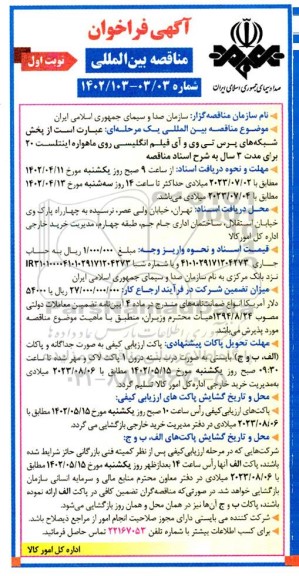 آگهی فراخوان
مناقصه بین‌المللی
نوبت اول
شماره ۰۳/۰۳-۱۴۰۲/۱۰۳
صدا و سیمای جمهوری اسلامی ایران
نام سازمان مناقصه‌گزار: سازمان صدا و سیمای جمهوری اسلامی ایران
موضوع مناقصه بین المللی یک مرحله‌ای: عبارت است از پخش
شبکه‌های پرس تی وی و آی فیلم انگلیسی روی ماهواره اینتلست ۲۰
برای مدت ۳ سال به شرح اسناد مناقصه
مهلت و نحوه دریافت اسناد: از ساعت ۹ صبح روز یکشنبه مورخ ۱۴۰۲/۰۴/۱۱
مطابق با ۲۰۲۳/۰۷/۰۲ میلادی حداکثر تا ساعت ۱۴ روز سه‌شنبه مورخ ۱۴۰۲/۰۴/۱۳
مطابق با ۲۰۲۳/۰۷/۰۴ میلادی می‌باشد.
محل دریافت اسناد: تهران، خیابان ولی عصر، نرسیده به چهارراه پارک وی
خیابان استقلال، ساختمان اداری جام جم، طبقه چهارم، مدیریت خرید خارجی
اداره کل امور کالا
قیمت اسناد و نحوه واریز وجه: مبلغ ۱/۰۰۰/۰۰۰ ریال به حساب
جاری ۴۱۰۱۰۲۹۱۷۱۲۰۴۲۷۳ و یا شماره شبا
نزد بانک مرکزی به نام سازمان صدا و سیمای جمهوری اسلامی ایران
میزان تضمین شرکت در فرآیند ارجاع کار: ۲۷/۰۰۰/۰۰۰/۰۰۰ ریال یا ۵۴۰۰۰
دلار آمریکا انواع ضمانتنامه‌های مندرج در ماده ۴ آیین‌نامه تضمین معاملات دولتی
مصوب ۱۳۹۴/۸/۲۴ هیأت محترم وزیران، منطبق با ماهیت موضوع مناقصه
مورد پذیرش می‌باشد
مهلت تحویل پاکات پیشنهادی: پاکت ارزیابی کیفی به صورت جداگانه و پاکات
(الف، ب و ج) بایستی، به صورت دربسته درون ۱ پاکت لاک و مهر شده تا ساعت
۰۹:۳۰ صبح روز یکشنبه مورخ ۱۴۰۲/۰۵/۱۵ مطابق با ۲۰۲۳/۰۸/۰۶ میلادی
به مدیریت خرید خارجی اداره کل امور کالا تسلیم گردد.
محل و تاریخ گشایش پاکت های ارزیابی کیفی:
پاکت‌های ارزیابی کیفی رأس ساعت ۱۰ صبح روز یکشنبه مورخ ۱۴۰۲/۰۵/۱۵ مطابق با
۲۰۲۳/۰۸/۰۶ میلادی در دفتر مدیریت خرید خارجی بازگشایی می گردد.
محل و تاریخ گشایش پاکت‌های الف، ب و ج:
شرکت‌هایی که در مرحله ارزیابی‌کیفی پس از نظر کمیته فنی بازرگانی حائز شرایط شده
باشند، پاکت الف آنها رأس ساعت ۱۴ بعدازظهر روز یکشنبه مورخ ۱۴۰۲/۰۵/۱۵ مطابق با
۲۰۲۳/۰۸/۰۶ میلادی در دفتر معاون محترم منابع مالی و سرمایه انسانی سازمان
بازگشایی خواهد شد. در صورتی‌که مناقصه‌گران تضمین کافی در پاکت الف ارائه نموده
باشند، پاکات ب و ج آن‌ها نیز در همان محل و همان روز بازگشایی می‌شود.
شرکت کننده می بایستی دارای مجوز صلاحیت انجام امور از مراجع ذیصلاح باشد.
برای کسب اطلاعات بیشتر با شماره تلفن ۲۲۱۶۷۰۵۳ تماس حاصل فرمائید.
اداره کل امور کالا